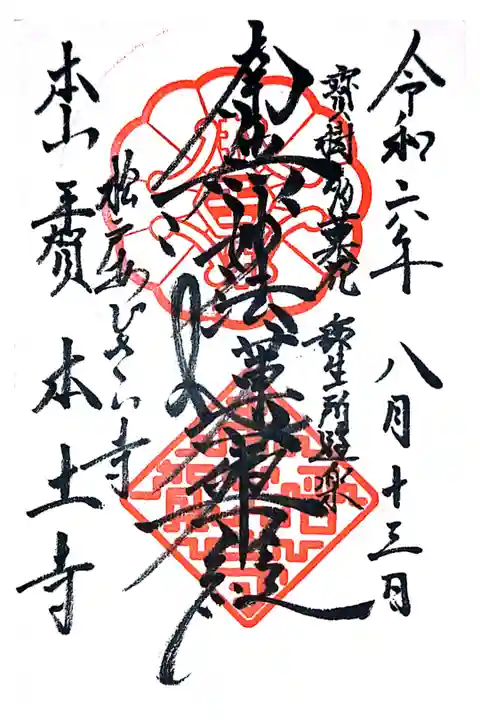 令和六年 八月十三日
寶樹多華菓 衆生所遊楽
南無妙法蓮華経
松戸 あぢさい寺
本山 平賀 本土寺